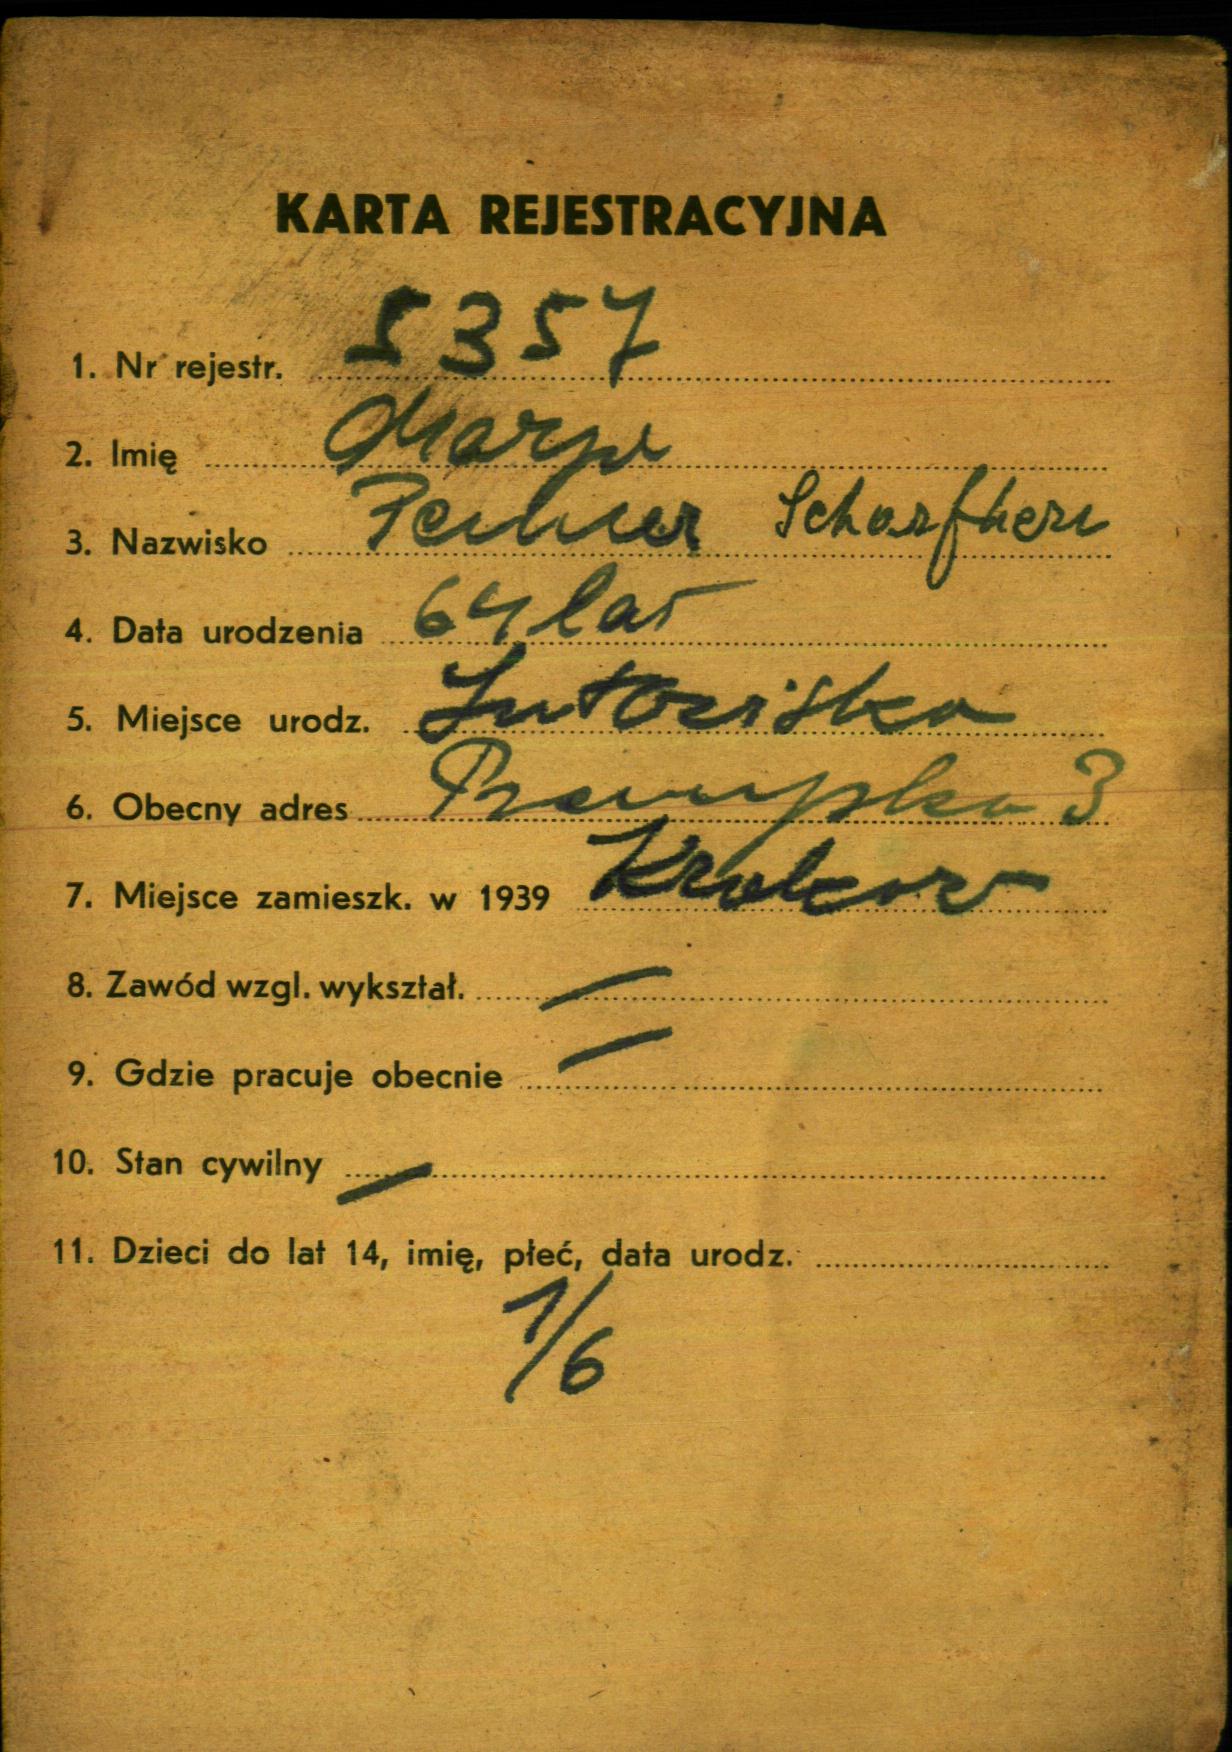 KARTA REJESTRACYJNA
1. Nr rejestr. 5357
2. Imię
3. Nazwisko
4. Data urodzenia 64 lat
5. Miejsce urodz.
6. Obecny adres 3
7. Miejsce zamieszk. w 1939 Krakow
8. Zawód wzgl. wykształ. —
9. Gdzie pracuje obecnie —
10. Stan cywilny —
11. Dzieci do lat 14, imię, płeć, data urodz.
1/6